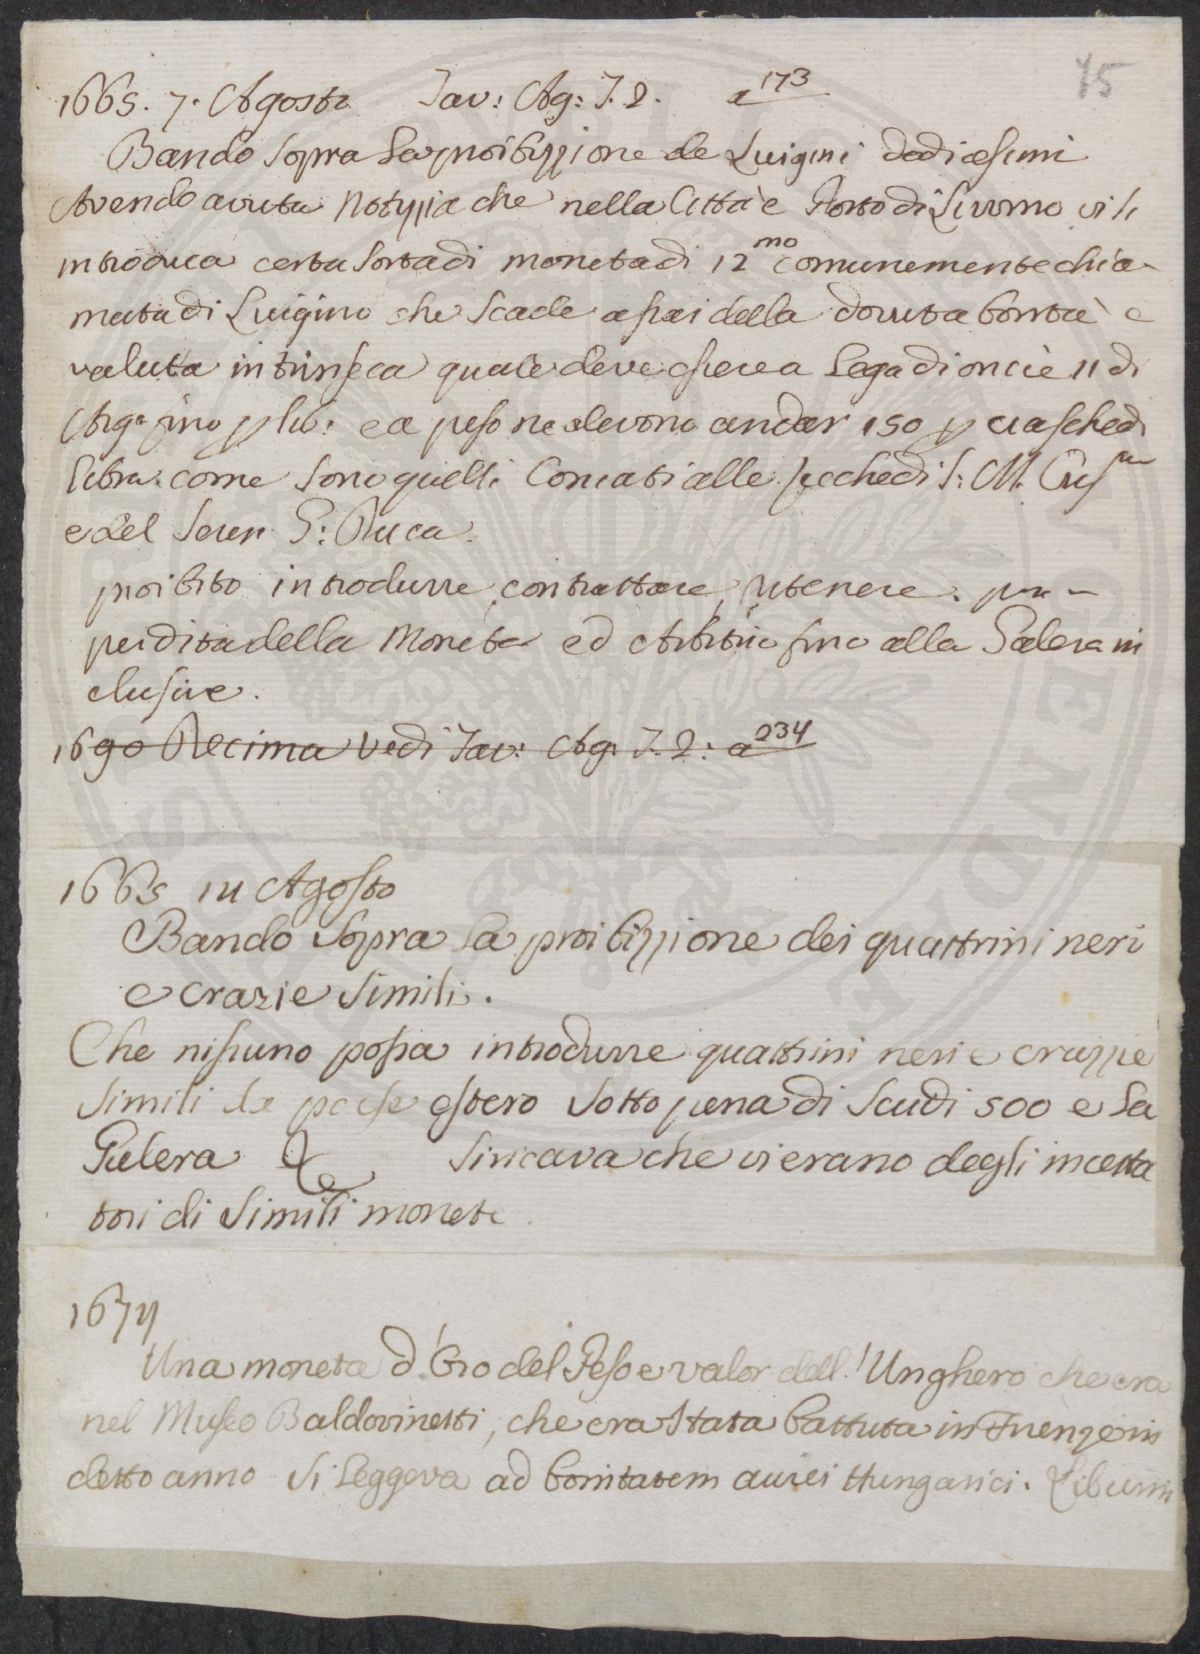 75
1665. 7. Agosto Tav: Ag: T. 2. a 173
Bando Sopra la proibizzione de Luigini dodicesimi
Avendo avuta Notizzia che nella Citta e Porto di Livorno vi si
introduca certa Sorta di moneta di 12mo comunemente chia-
mata di Luigino che Scade assai della dovuta bonta e
valuta intrinseca quale deve essere a Lega di oncie 11 di
Argo fino p lib: e a peso ne devono andar 150 p ciasched
libra come Sono quelli Coniati alle Zecche di S: M. Crisma
e del Seren G: Duca.
proibito introdurre, contrattare, ritenere. pena
perdita della Moneta ed Arbitrio fino alla Galera in
clusive.
1690 Decima Vedi Tav: Ag: T. 2: a 234
1665 in Agosto
Bando Sopra la proibizzione dei quattrini neri
e Crazie Simili.
Che nissuno possa introdurre quattrini neri e crazzie
Simili da paese estero Sotto pena di Scudi 500 e la
Galera &c Si ricava che vi erano degli incetta
tori di Simili monete.
1674
Una moneta d'Oro del Peso e valor dell'Unghero che era
nel Museo Baldovinetti, che era Stata battuta in Firenze in
detto anno Si Leggeva ad bonitatem aurei Hungarici. Liburni